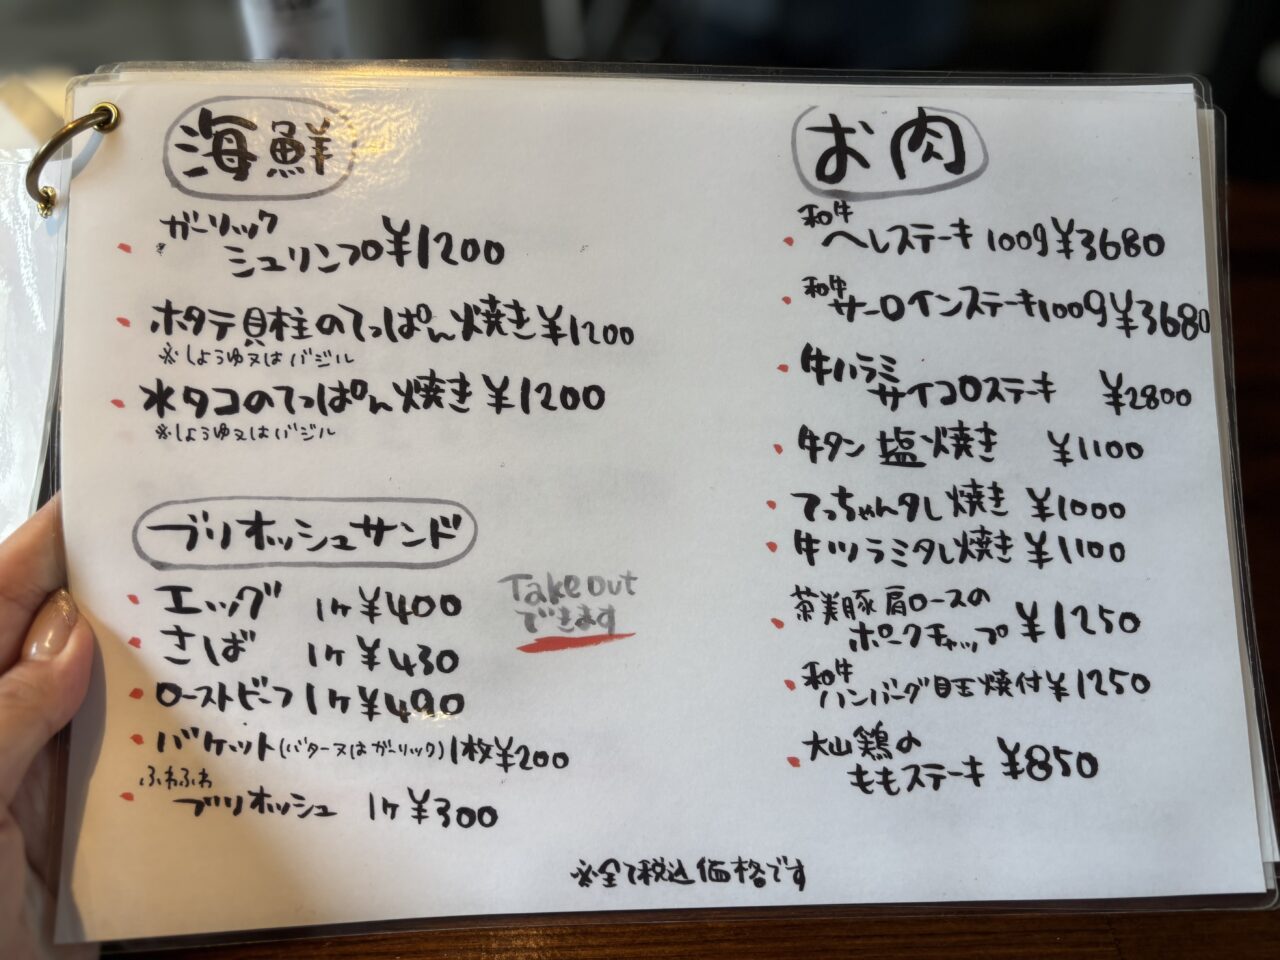 海鮮
ガーリック
シュリンプ ¥1200
ホタテ貝柱のてっぱん焼き ¥1200
※しょうゆ又はバジル
水タコのてっぱん焼き ¥1200
※しょうゆ又はバジル
ブリオッシュサンド
エッグ 1ヶ ¥400
さば 1ヶ ¥430
ローストビーフ 1ヶ ¥490
バケット(バター又はガーリック) 1枚¥200
ふわふわ
ブリオッシュ 1ヶ ¥300
Take out
できます
お肉
和牛
ヘレステーキ 100g ¥3680
和牛
サーロインステーキ 100g ¥3680
牛ハラミ
サイコロステーキ ¥2800
牛タン 塩焼き ¥1100
てっちゃんタレ焼き ¥1000
牛ツラミタレ焼き ¥1100
茶美豚 肩ロースの
ポークチャップ ¥1250
和牛
ハンバーグ目玉焼付 ¥1250
大山鶏の
ももステーキ ¥850
※全て税込価格です